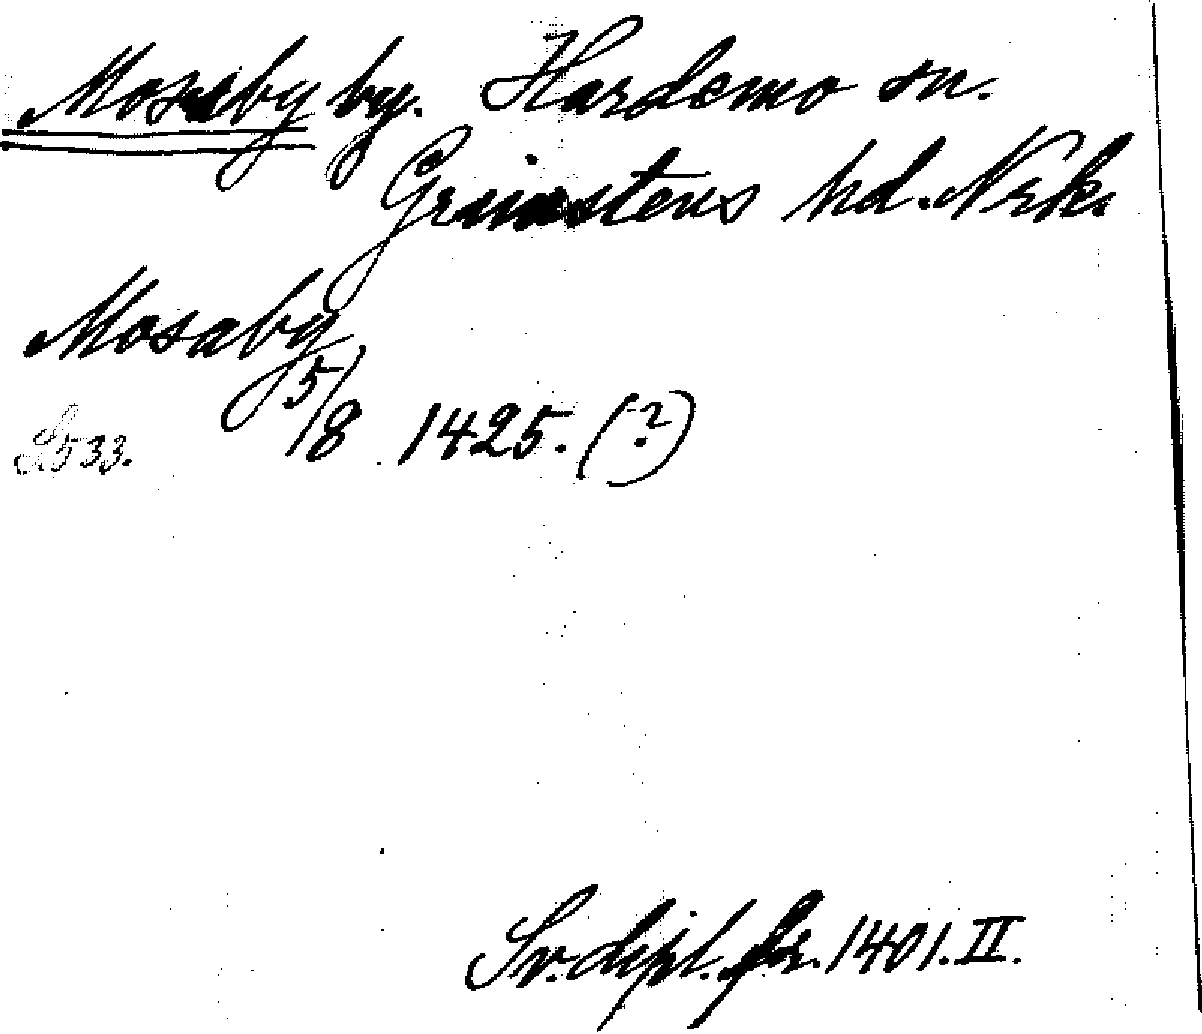 Mosaby by. Hardemo sn.
Grimstens hd. Nrk.
Mosaby
5/8 1425. (?)
S. 533.
Sv. dipl. fr. 1401. II.